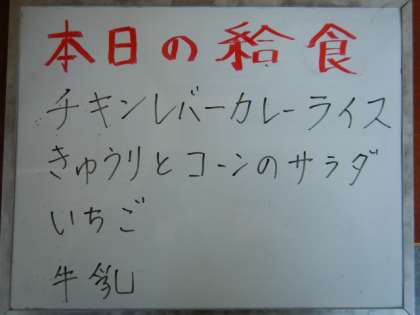 本日の給食
チキンレバーカレーライス
きゅうりとコーンのサラダ
いちご
牛乳